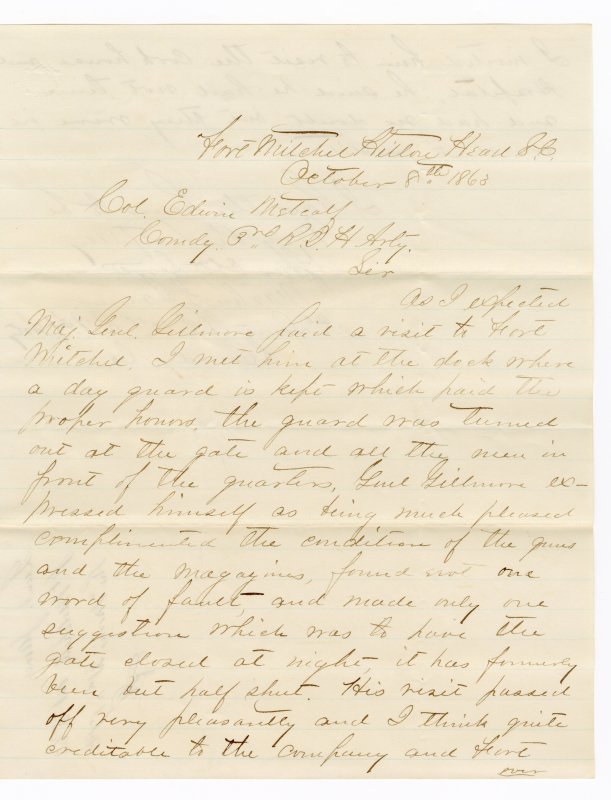 Fort Mitchel Hilton Head S.C.
October 8th 1863
Col. Edwin Metcalf
Comdg. 3rd R.I. H Arty.
Sir
As I expected
Maj. Genl. Gillmore paid a visit to Fort
Mitchel, I met him at the dock where
a day guard is kept which paid the
proper honors, the guard was turned
out at the gate and all the men in
front of the quarters, Genl Gillmore ex-
pressed himself as being much pleased
complimented the condition of the guns
and the magazines, found not one
word of fault, and made only one
suggestion which was to have the
gate closed at night, it has formerly
been but half shut. His visit passed
off very pleasantly and I think quite
creditable to the company and Fort
over